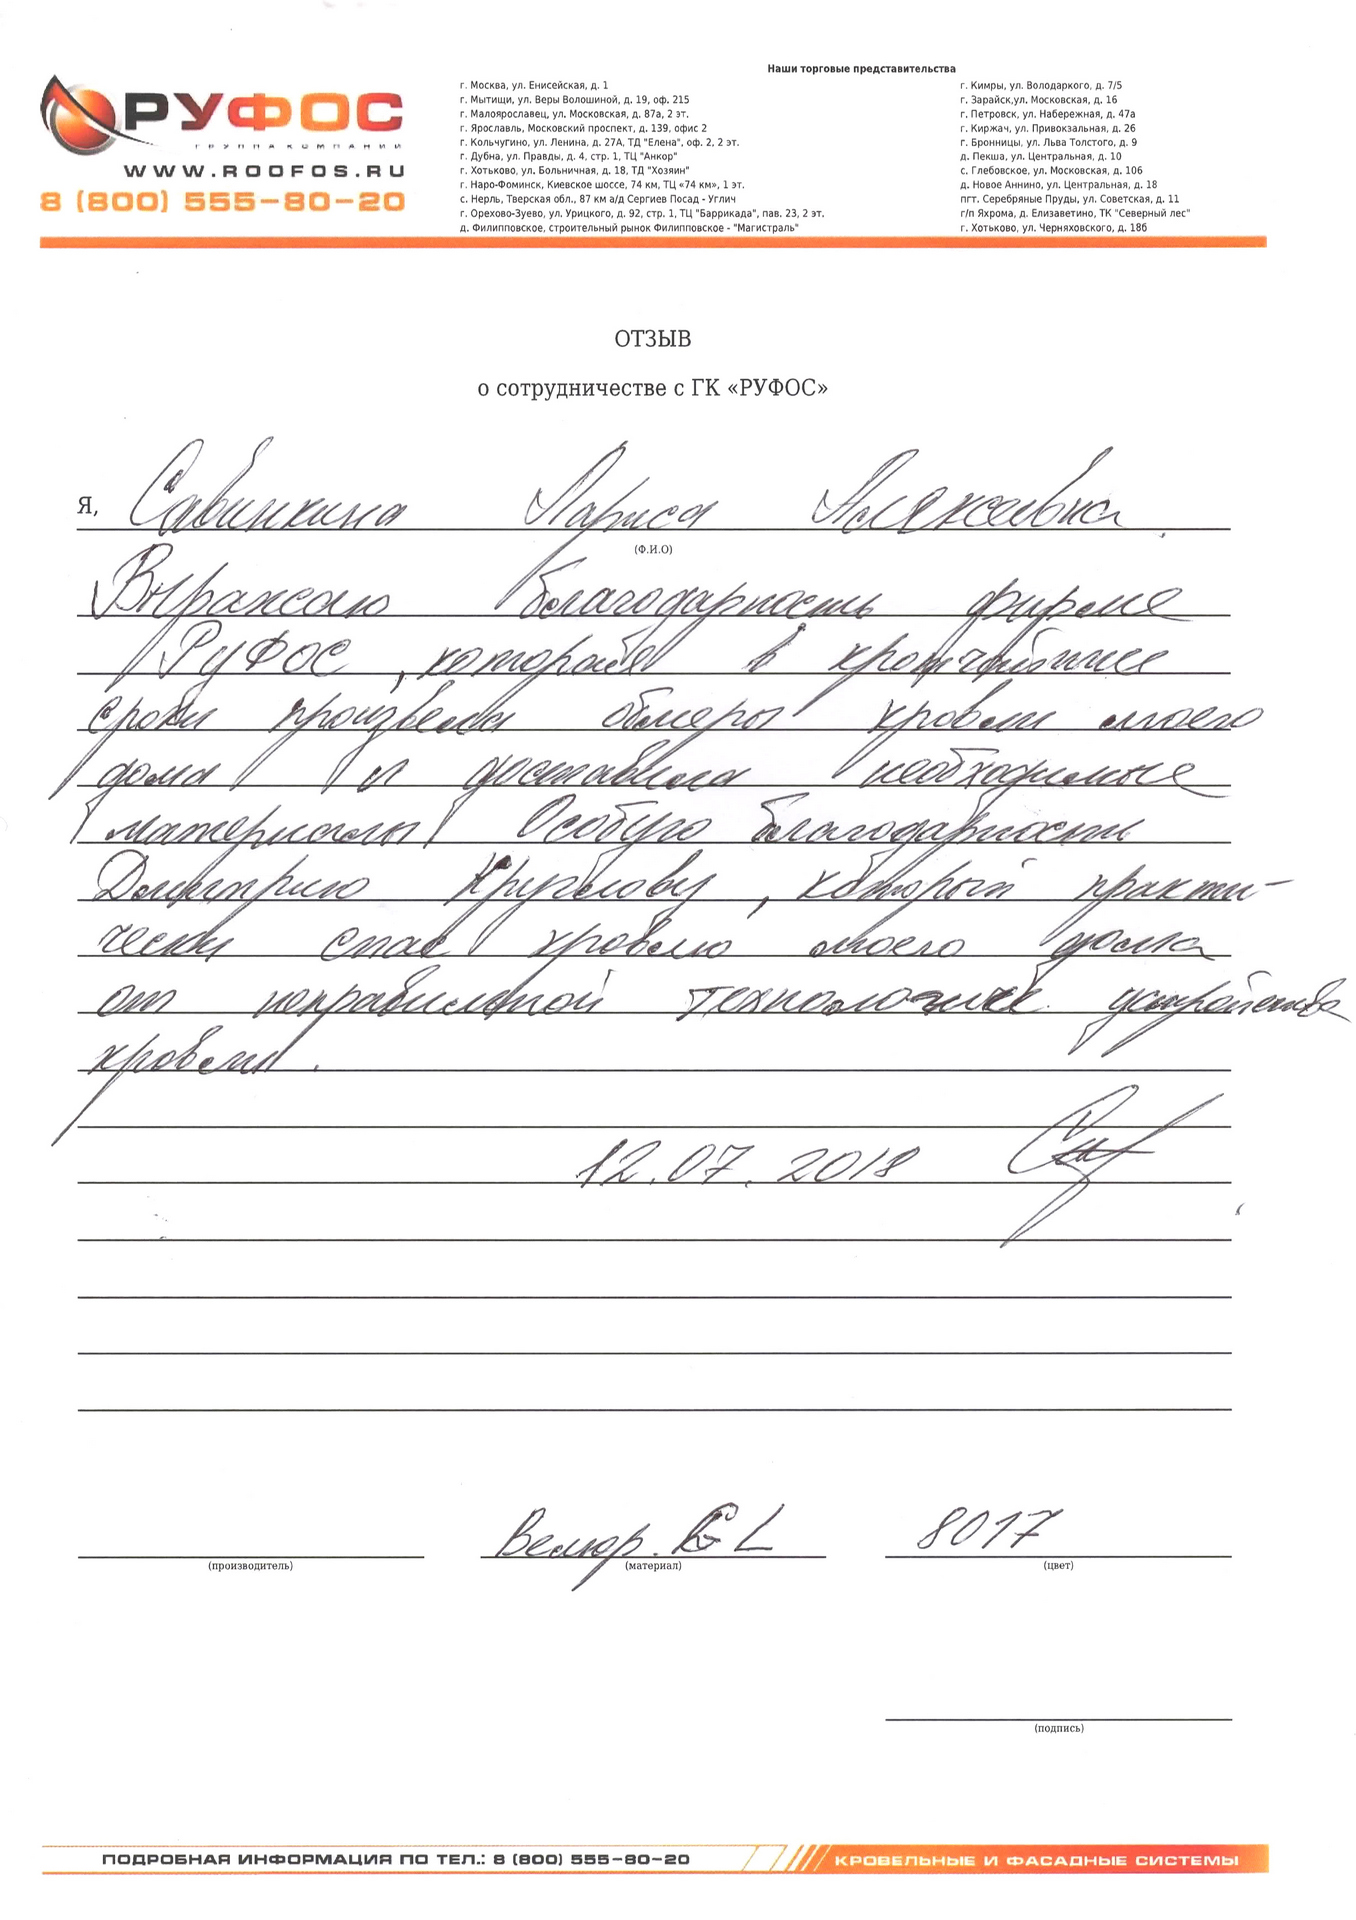 РУФОС
ГРУППА КОМПАНИЙ
WWW.ROOFOS.RU
8 (800) 555-80-20
Наши торговые представительства
г. Москва, ул. Енисейская, д. 1
г. Мытищи, ул. Веры Волошиной, д. 19, оф. 215
г. Малоярославец, ул. Московская, д. 87а, 2 эт.
г. Ярославль, Московский проспект, д. 139, офис 2
г. Кольчугино, ул. Ленина, д. 27А, ТД "Елена", оф. 2, 2 эт.
г. Дубна, ул. Правды, д. 4, стр. 1, ТЦ "Анкор"
г. Хотьково, ул. Больничная, д. 18, ТД "Хозяин"
г. Наро-Фоминск, Киевское шоссе, 74 км, ТЦ «74 км», 1 эт.
с. Нерль, Тверская обл., 87 км а/д Сергиев Посад - Углич
г. Орехово-Зуево, ул. Урицкого, д. 92, стр. 1, ТЦ "Баррикада", пав. 23, 2 эт.
д. Филипповское, строительный рынок Филипповское - "Магистраль"
г. Кимры, ул. Володаркого, д. 7/5
г. Зарайск,ул. Московская, д. 16
г. Петровск, ул. Набережная, д. 47а
г. Киржач, ул. Привокзальная, д. 26
г. Бронницы, ул. Льва Толстого, д. 9
д. Пекша, ул. Центральная, д. 10
с. Глебовское, ул. Московская, д. 106
д. Новое Аннино, ул. Центральная, д. 18
пгт. Серебряные Пруды, ул. Советская, д. 11
г/п Яхрома, д. Елизаветино, ТК "Северный лес"
г. Хотьково, ул. Черняховского, д. 18б
ОТЗЫВ
о сотрудничестве с ГК «РУФОС»
Я, Савинкина Лариса
(Ф.И.О)
Выражаю благодарность фирме
РуФОС, которая в кратчайшие
сроки произвела обмеры кровли моего
дома и доставила необходимые
материалы Особую благодарность
Дмитрию Круглову, который практи-
чески спас кровлю моего дома
от неправильной устройства
кровли.
12.07.2018
(производитель)
Велюр. GL
(материал)
8017
(цвет)
(подпись)
ПОДРОБНАЯ ИНФОРМАЦИЯ ПО ТЕЛ.: 8 (800) 555-80-20
КРОВЕЛЬНЫЕ И ФАСАДНЫЕ СИСТЕМЫ